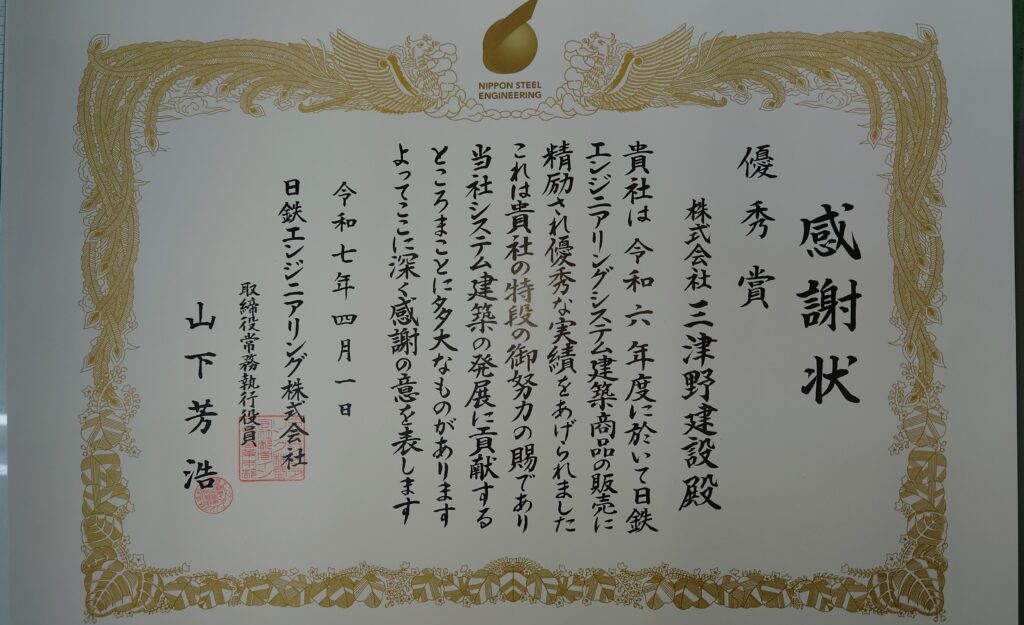 NIPPON STEEL
ENGINEERING
感謝状
優秀賞
株式会社 三津野建設殿
貴社は令和六年度に於いて日鉄
エンジニアリングシステム建築商品の販売に
精励され優秀な実績をあげられました
これは貴社の特段の御努力の賜であり
当社システム建築の発展に貢献する
ところまことに多大なものがあります
よってここに深く感謝の意を表します
令和七年四月一日
日鉄エンジニアリング株式会社
取締役常務執行役員
山下芳浩